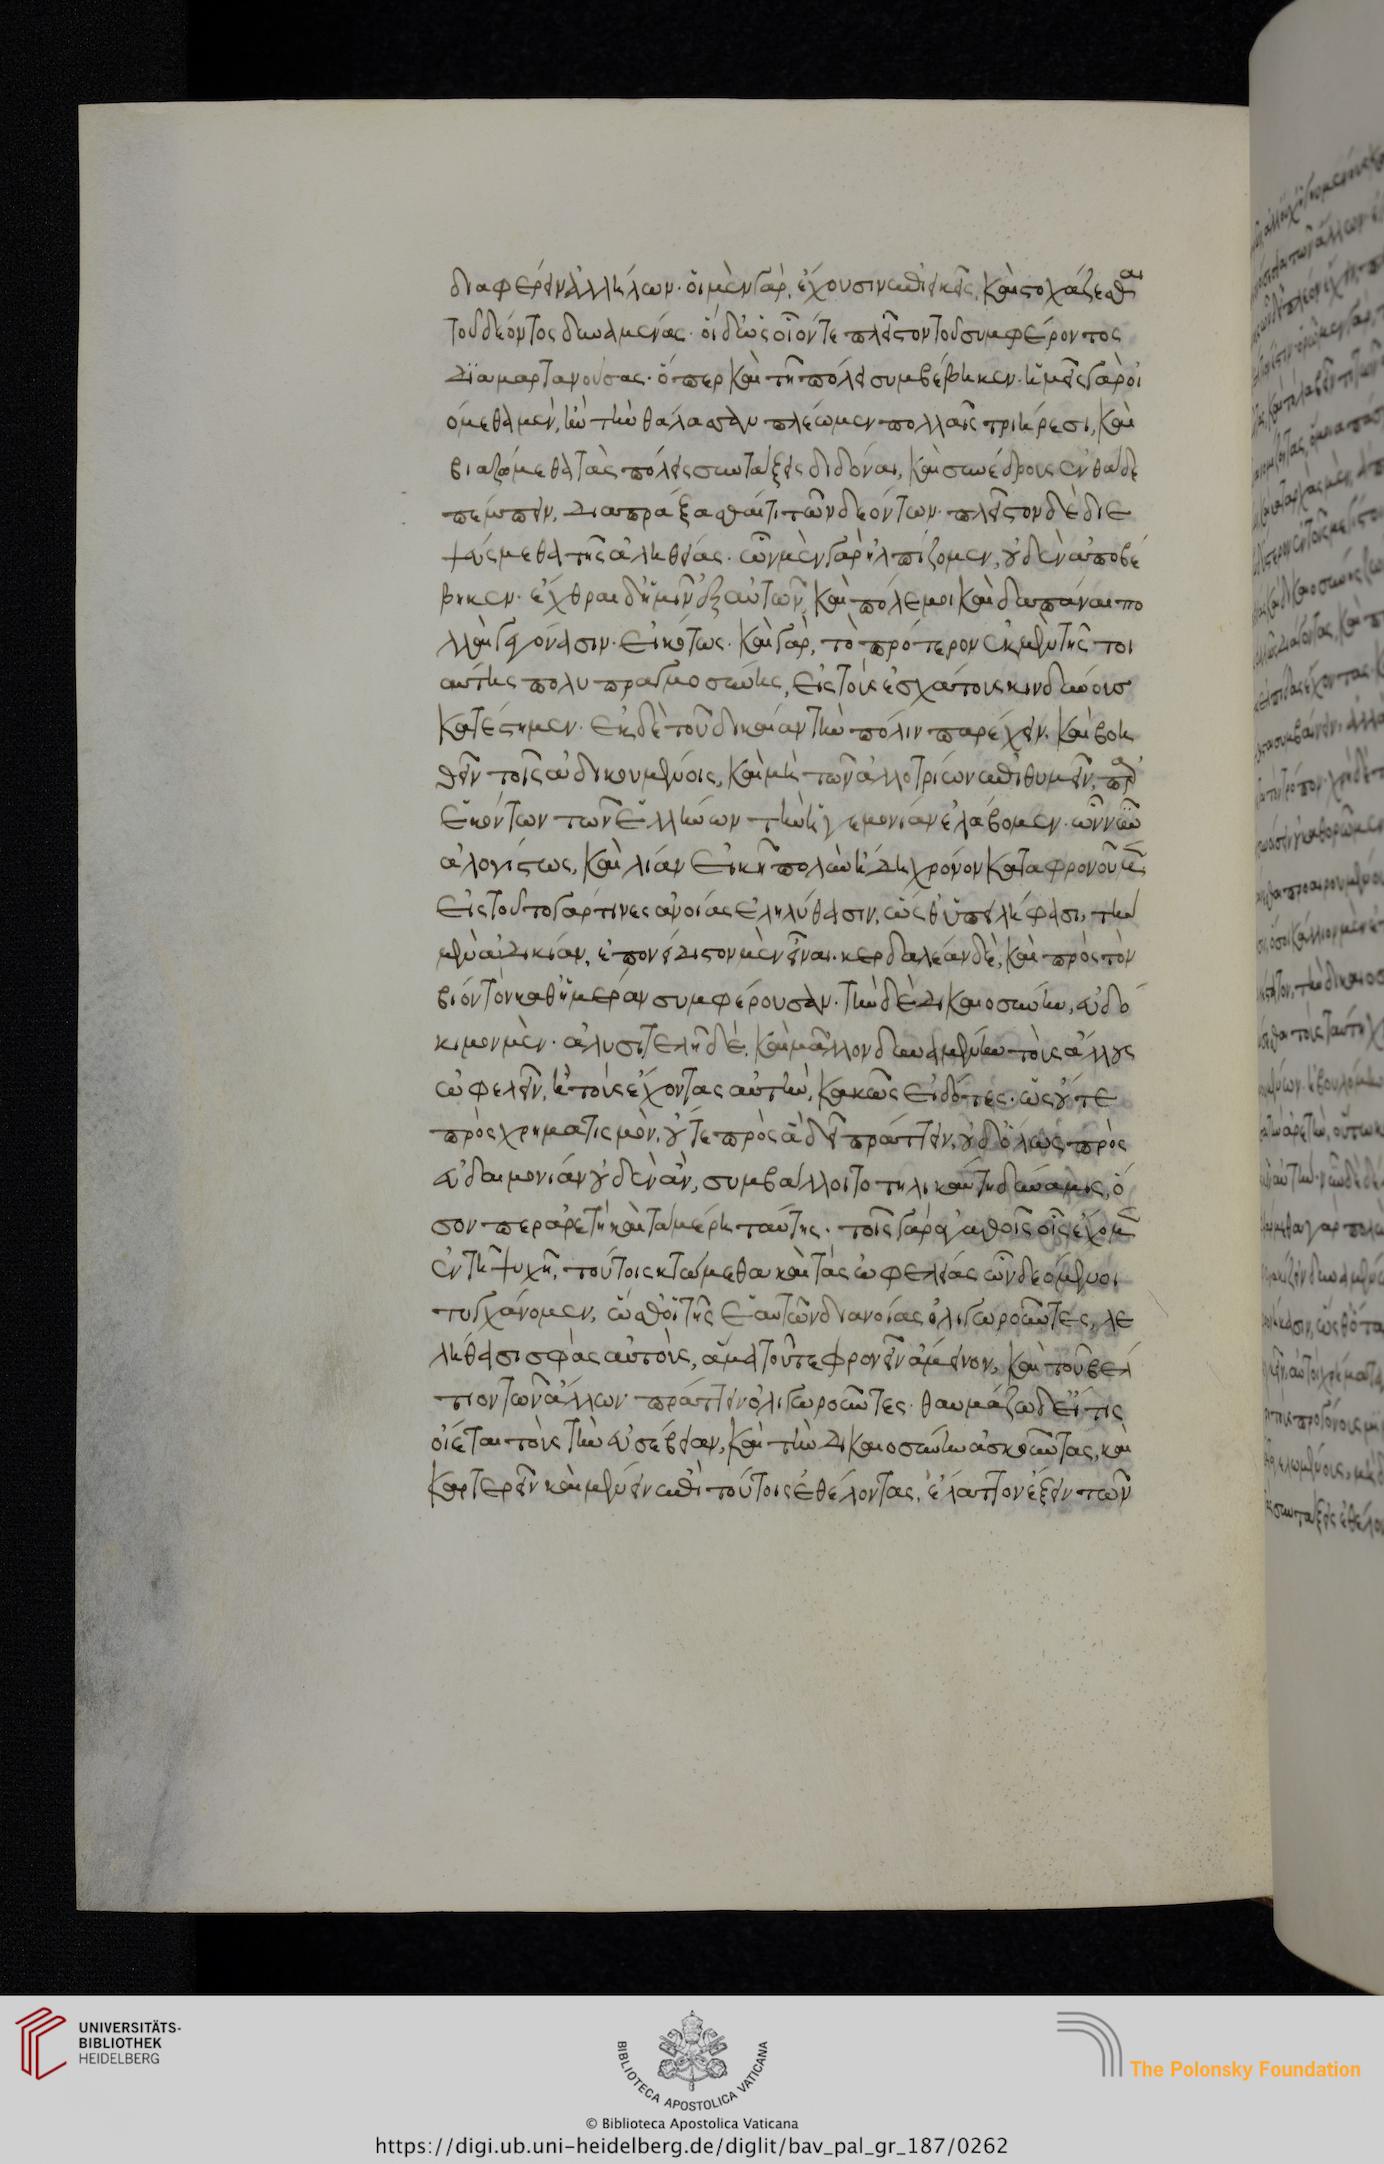 διαφέρειν ἀλλήλων. οἱ μὲν γὰρ, ἔχουσιν ἐπιεικεῖς, καὶ στοχάζεσθαι
τοῦ δέοντος δυναμένας. οἱ δ' ὡς οἷόν τε πλεῖστον τοῦ συμφέροντος
διαμαρτανούσας. ὅπερ καὶ τῇ πόλει συμβέβηκεν. ἡμεῖς γὰρ οἰ
όμεθα μὲν, ἢν τὴν θάλασσαν πλέωμεν πολλαῖς τριήρεσι, καὶ
βιαζόμεθα τὰς πόλεις συντάξεις διδόναι, καὶ συνέδρους ἐνθάδε
πέμπειν, διαπράξασθαί τι τῶν δεόντων. πλεῖστον δὲ διε
ψεύσμεθα τῆς ἀληθείας. ὧν μὲν γὰρ ἠλπίζομεν, οὐδὲν ἀποβέ
βηκεν. ἔχθραι δ' ἡμῖν ἐξ αὐτῶν, καὶ πόλεμοι καὶ δαπάναι πο
λλαὶ γεγόνασιν. εἰκότως. καὶ γὰρ, τὸ πρότερον ἐκ μὲν τῆς τοι
αύτης πολυπραγμοσύνης, εἰς τοὺς ἐσχάτους κινδύνους
κατέστημεν. ἐκ δὲ τοῦ δικαίαν τὴν πόλιν παρέχειν. καὶ βοη
θεῖν τοῖς ἀδικουμένοις, καὶ μὴ τῶν ἀλλοτρίων ἐπιθυμεῖν, παρ'
ἑκόντων τῶν Ἑλλήνων τὴν ἡγεμονίαν ἐλάβομεν. ὧν νῦν
ἀλογίστως, καὶ λίαν εἰκῇ πολὺν ἤδη χρόνον καταφρονοῦμεν
εἰς τοῦτο γάρ τινες ἀνοίας ἐληλύθασιν, ὥσθ' ὑπειλήφασι, τὴν
μὲν ἀδικίαν, ἐπονείδιστον μὲν εἶναι. κερδαλέαν δὲ, καὶ πρὸς τὸν
βίον τὸν καθ' ἡμέραν συμφέρουσαν. τὴν δὲ δικαιοσύνην, εὐδό
κιμον μὲν. ἀλυσιτελῆ δὲ. καὶ μᾶλλον δυναμένην τοὺς ἄλλους
ὠφελεῖν, ἢ τοὺς ἔχοντας αὐτὴν, κακῶς εἰδότες. ὡς οὔτε
πρὸς χρηματισμὸν, οὔτε πρὸς ἃ δεῖ πράττειν, οὐδ' ὅλως πρὸς
εὐδαιμονίαν οὐδὲν ἂν, συμβάλλοιτο τηλικαύτη δύναμις, ὅ
σον περ ἀρετὴ καὶ τὰ μέρη ταύτης. τοῖς γὰρ ἀγαθοῖς οἷς ἔχομεν
ἐν τῇ ψυχῇ, τούτοις κτώμεθα καὶ τὰς ὠφελείας ὧν δεόμενοι
τυγχάνομεν, ὥσθ' οἱ τῆς ἑαυτῶν διανοίας ὀλιγωροῦντες, λε
λήθασι σφᾶς αὐτοὺς, ἅμα τοῦ τε φρονεῖν ἄμεινον, καὶ τοῦ βέλ
τιον τῶν ἄλλων πράττειν ὀλιγωροῦντες. θαυμάζω δ' εἴ τις
οἴεται τοὺς τὴν εὐσέβειαν, καὶ τὴν δικαιοσύνην ἀσκοῦντας, καὶ
καρτερεῖν καὶ μένειν ἐπὶ τούτοις ἐθέλοντας, ἔλαττον ἕξειν τῶν
UNIVERSITÄTS-
BIBLIOTHEK
HEIDELBERG
BIBLIOTECA APOSTOLICA VATICANA
The Polonsky Foundation
© Biblioteca Apostolica Vaticana
https://digi.ub.uni-heidelberg.de/diglit/bav_pal_gr_187/0262